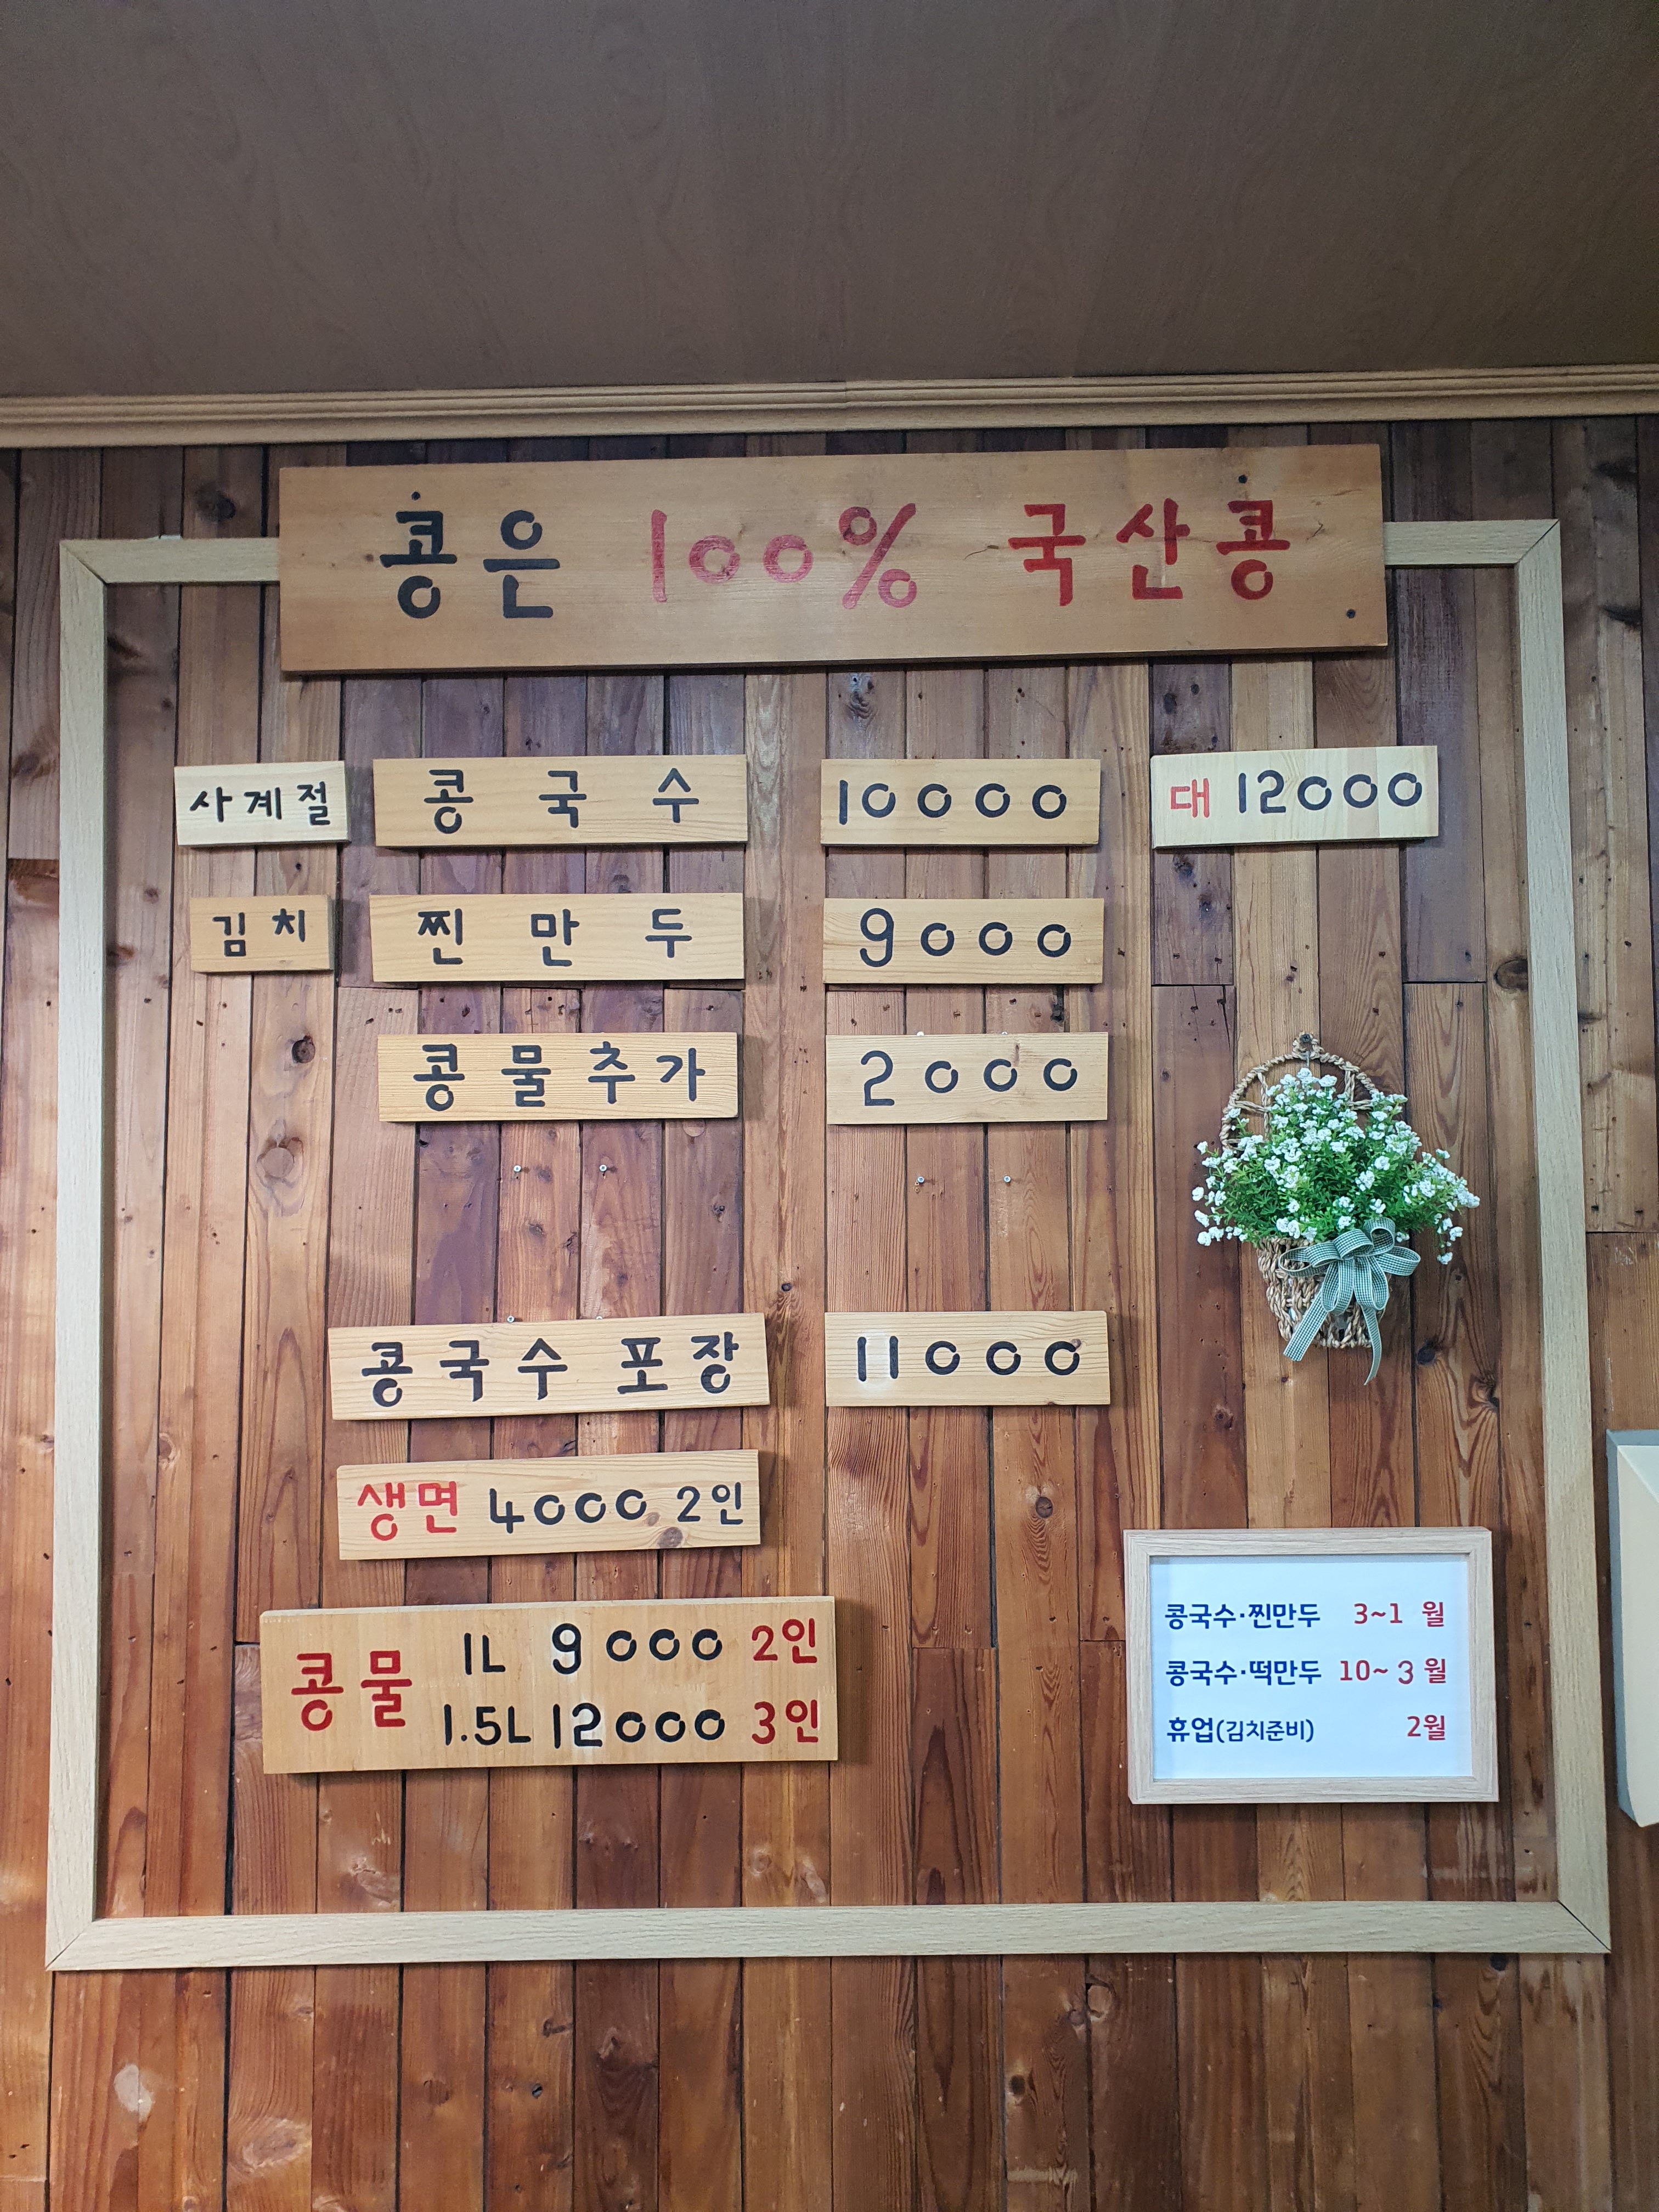 콩은 100% 국산콩
사계절 콩국수 10000 대 12000
김치 찐만두 9000
콩물추가 2000
콩국수 포장 11000
생면 4000 2인
콩물 1L 9000 2인
1.5L 12000 3인
콩국수·찐만두 3~1 월
콩국수·떡만두 10~3 월
휴업(김치준비) 2월